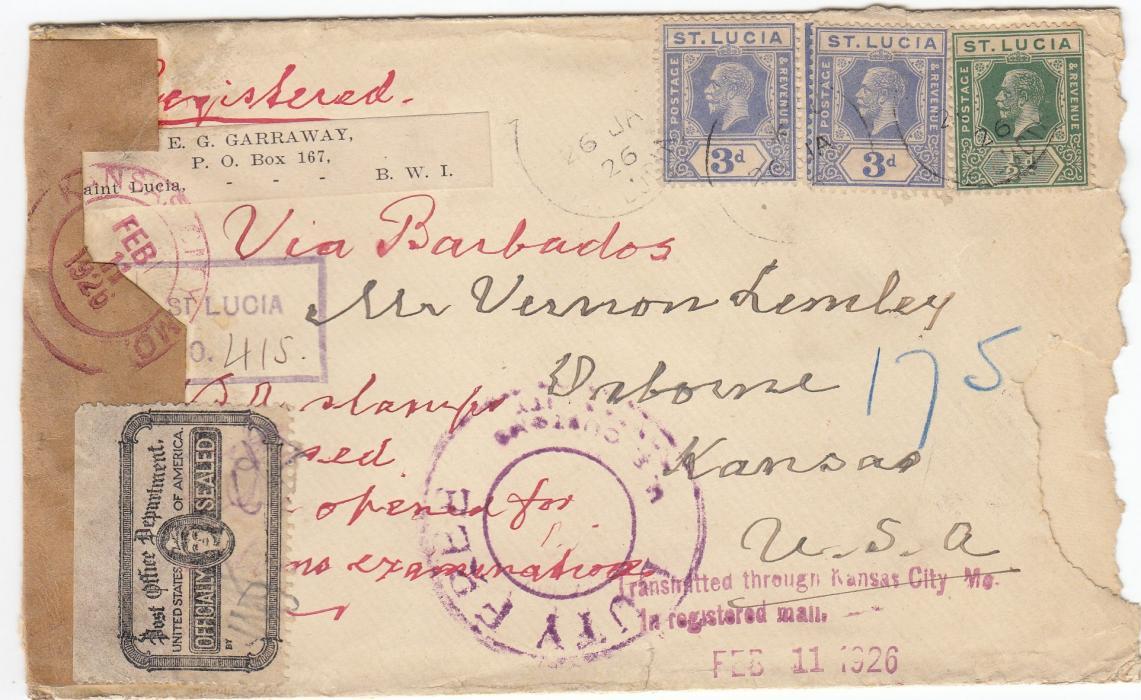 ST. LUCIA
POSTAGE & REVENUE
3d
ST. LUCIA
POSTAGE & REVENUE
3d
ST. LUCIA
POSTAGE & REVENUE
½d
26 JA
26
Registered.
E. G. GARRAWAY,
P. O. Box 167,
aint Lucia, - - - B. W. I.
KANSAS CITY MO.
FEB
11
1926
Via Barbados
ST. LUCIA
O. 415.
Mr Vernon Lemley
Osborne
175
Kansas
U.S.A
stamps
sed
opened for
examination
DUTY FREE
U.S. CUSTOMS
Post Office Department.
UNITED STATES OF AMERICA.
OFFICIALLY SEALED
BY
Transmitted through Kansas City Mo.
In registered mail.
FEB 11 1926